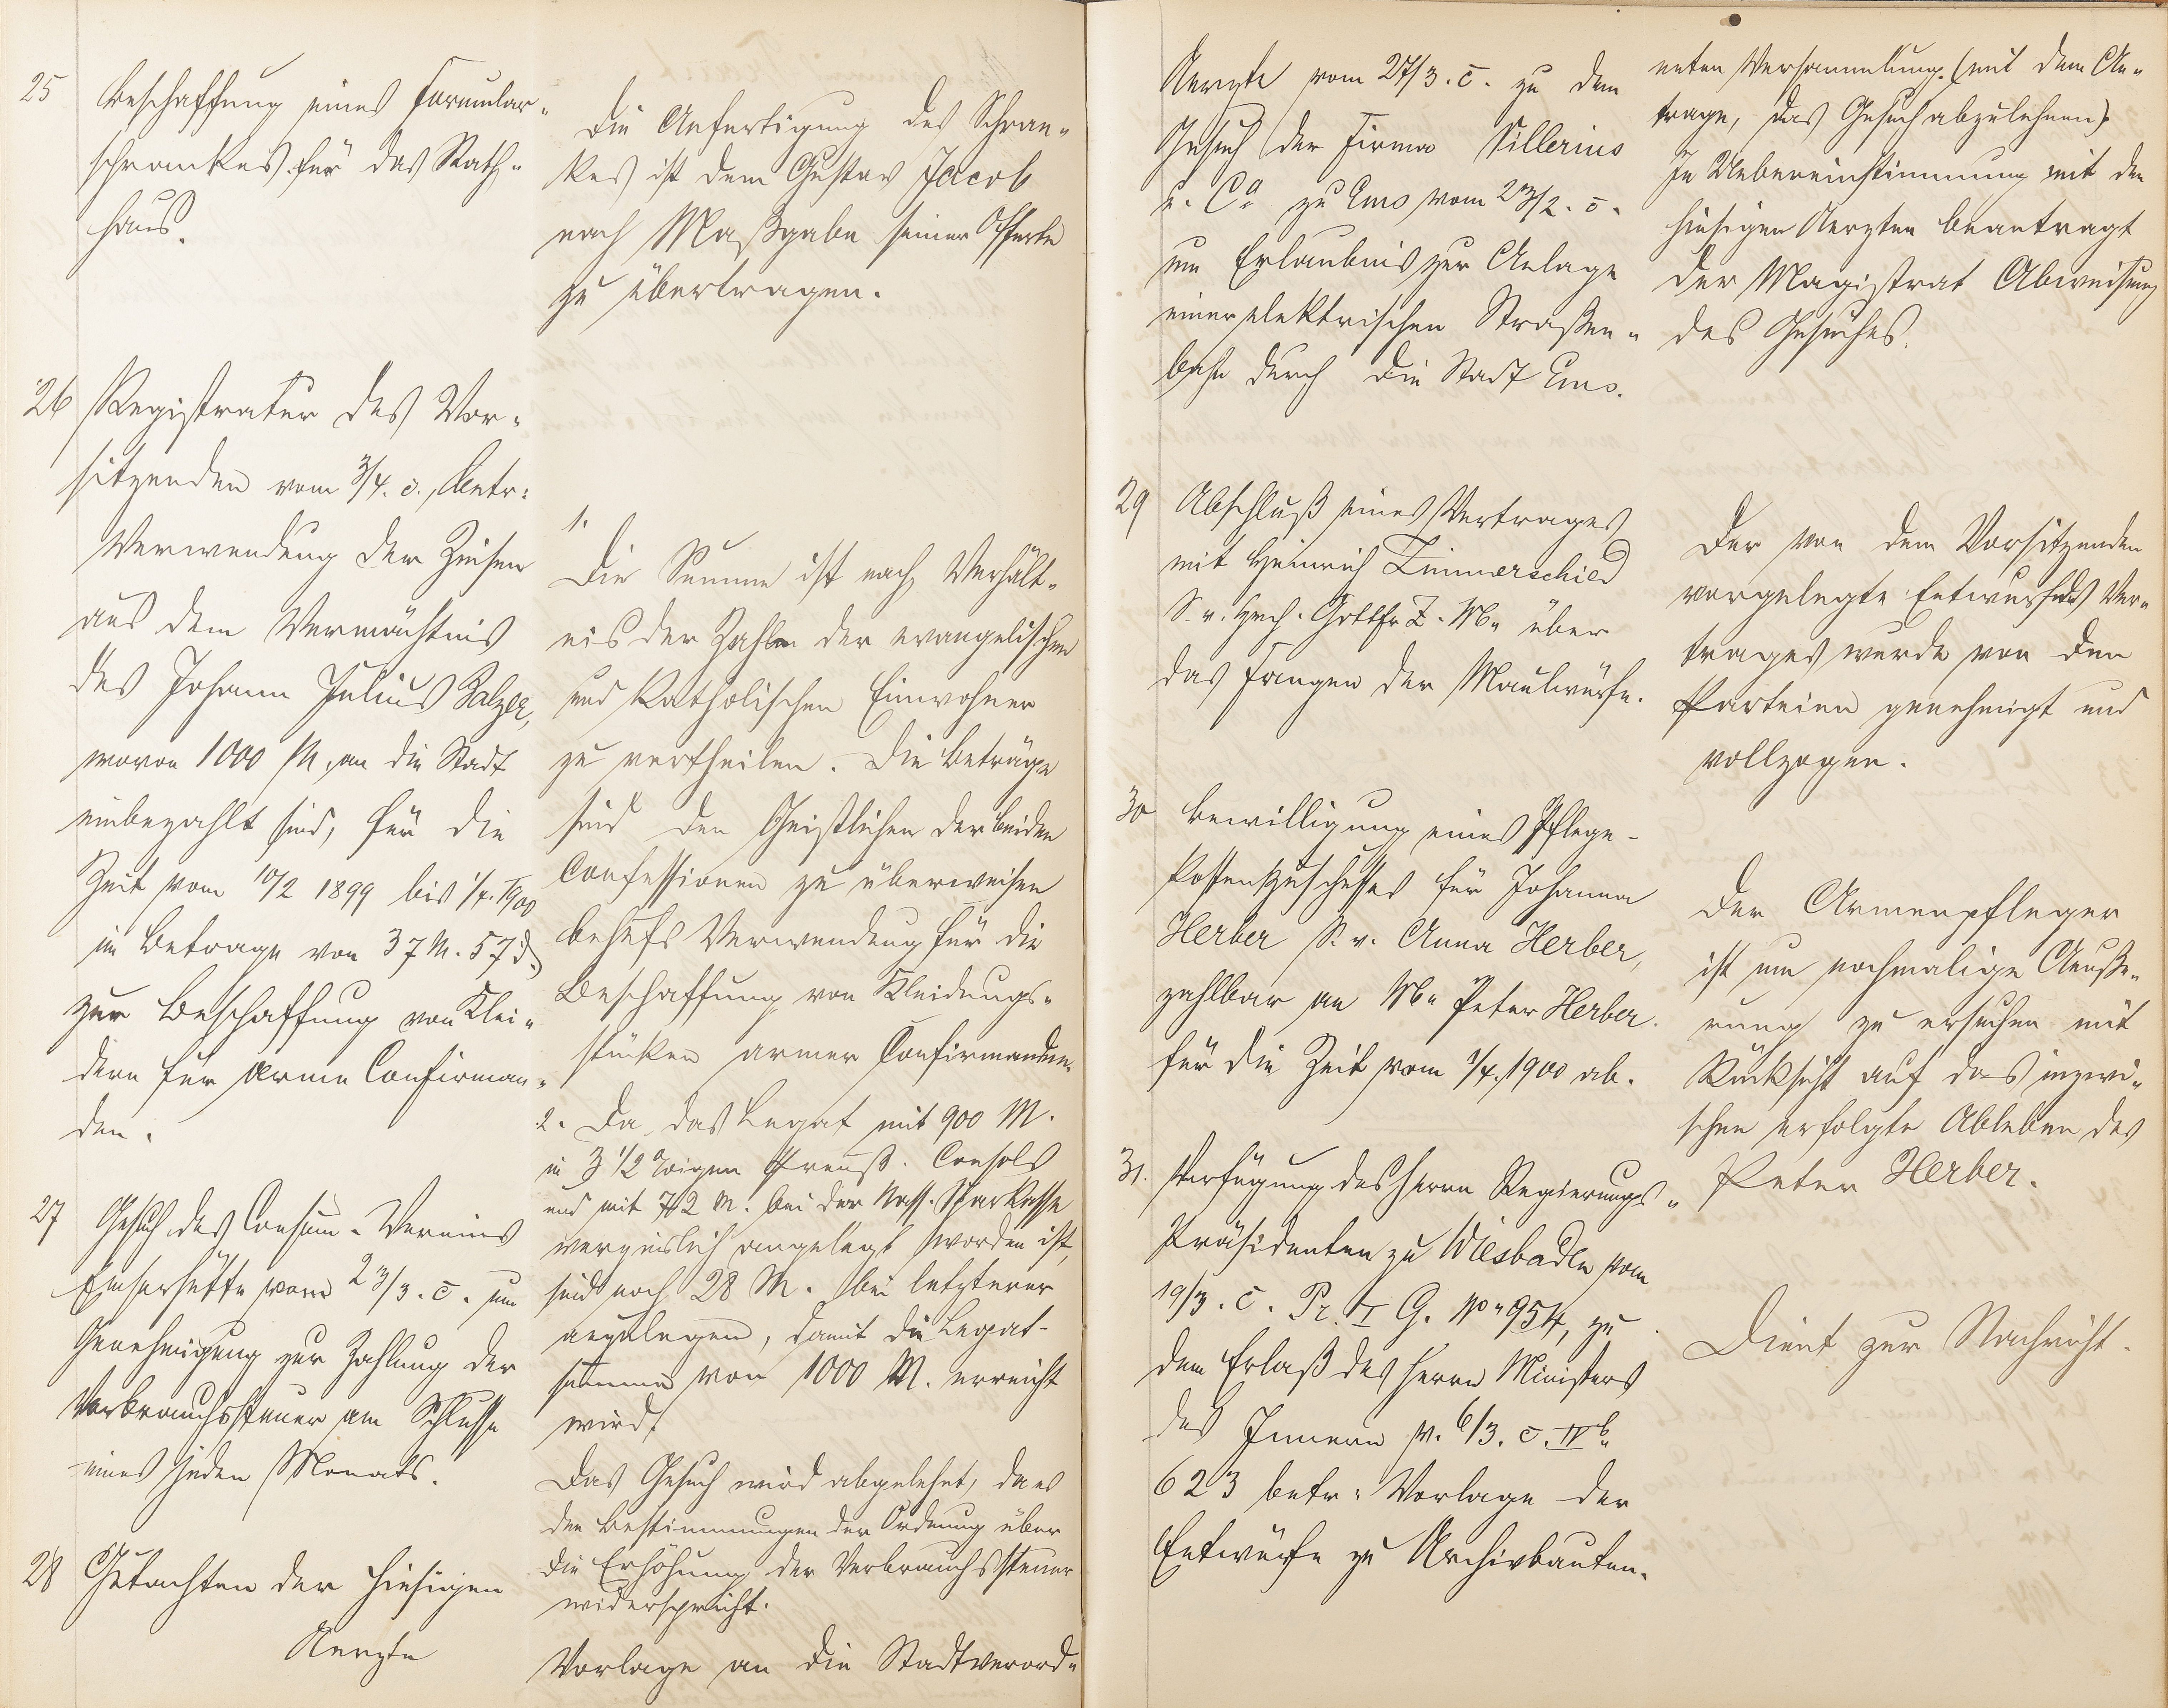 25 Beschaffung eines Formular-
schrankes für das Rath-
haus.
Die Anfertigung des Schran-
kes ist dem Gustav Jacob
nach Maßgabe seiner Offerte
zu übertragen.
26 Registratur des Vor-
sitzenden vom 3/4. c., betr:
Verwendung der Zinsen
aus dem Vermächtnis
des Johann Julius Balzer,
wovon 1000 M. an die Stadt
einbezahlt sind, für die
Zeit vom 10/2 1899 bis 1/4. 1900
im Betrage von 37 M. 57 d
zur Beschaffung von Klei-
dern für arme Confirman-
den.
1.
Die Summe ist nach Verhält-
nis der Zahlen der evangelischen
und katholischen Einwohner
zu vertheilen. Die Beträge
sind den Geistlichen der beiden
Confessionen zu überweisen
behufs Verwendung für die
Beschaffung von Kleidungs-
stücken armer Confirmanden.
2. Da das Legat mit 900 M.
in 3 1/2 %igen Preuß. Consols
und mit 72 M. bei der Nass. Sparkasse
verzinslich angelegt worden ist,
sind noch 28 M. bei letzterer
anzulegen, damit die Legat-
summe von 1000 M. erreicht
wird.
27 Gesuch des Consum-Vereins
Emserhütte vom 23/3. c. um
Genehmigung zur Zahlung der
Verbrauchssteuer am Schlusse
eines jeden Monats.
Das Gesuch wird abgelehnt, da es
den Bestimmungen der Ordnung über
die Erhöhung der Verbrauchssteuer
widerspricht.
28 Gutachten der hiesigen
Aerzte
Vorlage an die Stadtverord-
Aerzte vom 27/3. c. zu dem
Gesuch der Firma Villerius
u. Co zu Ems vom 23/2. c.
um Erlaubnis zur Anlage
einer elektrischen Straßen-
bahn durch die Stadt Ems.
neten Versammlung. (mit dem An-
trage, das Gesuch abzulehnen)
In Uebereinstimmung mit den
hiesigen Aerzten beantragt
der Magistrat Abweisung
des Gesuches.
29 Abschluß eines Vertrages
mit Heinrich Linnerschied
S. v. Hch. Gottfr. L. M. über
das Fangen der Maulwürfe.
Der von dem Vorsitzenden
vorgelegte Entwurf des Ver-
trages wurde von den
Parteien genehmigt und
vollzogen.
30 Bewilligung eines Pflege-
kostenzuschusses für Johanna
Herber S. v. Anna Herber,
zahlbar an M. Peter Herber.
für die Zeit vom 1/4. 1900 ab.
Der Armenpfleger
ist um nochmalige Aeuße-
rung zu ersuchen mit
Rücksicht auf das inzwi-
schen erfolgte Ableben des
Peter Herber.
31. Verfügung des Herrn Regierungs-
Präsidenten zu Wiesbaden vom
19/3. c. Pr. I G. No 954, zu
dem Erlaß des Herrn Ministers
des Innern v. 6/3. c. IV b.
623 betr: Vorlage der
Entwürfe zu Archivbauten.
Dient zur Nachricht.